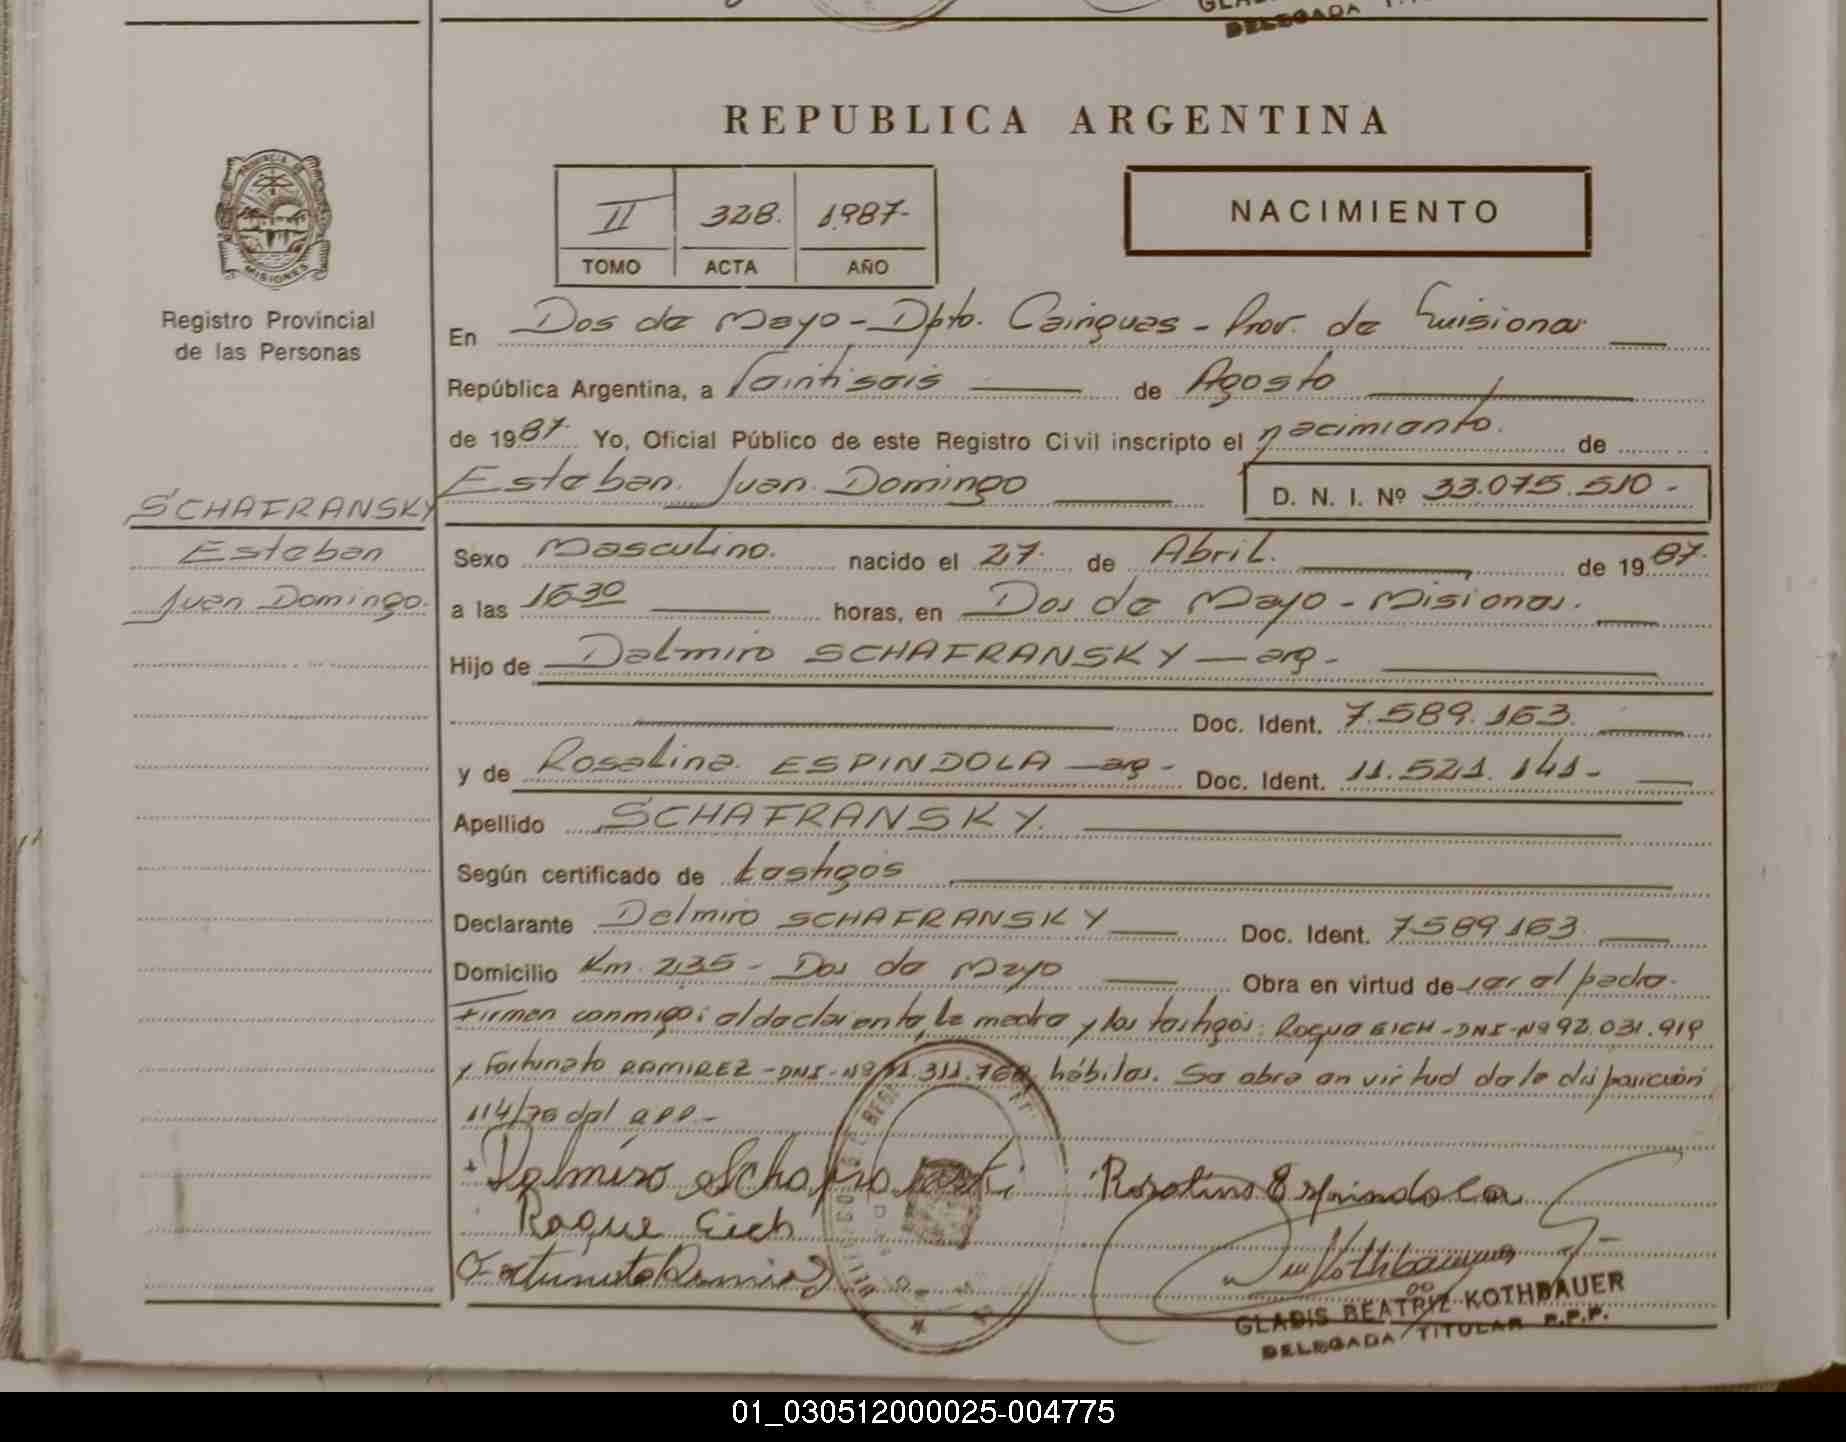 GLADIS
DELEGADA TIT
REPUBLICA ARGENTINA
II 328. 1987-
TOMO ACTA AÑO
NACIMIENTO
PROVINCIA DE
MISIONES
Registro Provincial
de las Personas
En Dos de Mayo - Dpto. Cainguas - Prov. de Misiones
República Argentina, a Veintiseis de Agosto
de 1987. Yo, Oficial Público de este Registro Civil inscripto el nacimiento. de
Esteban Juan Domingo D. N. I. Nº 33.075.510-
SCHAFRANSKY
Esteban
Juan Domingo.
Sexo Masculino. nacido el 27. de Abril. de 1987.
a las 1630 horas, en Dos de Mayo - Misiones.
Hijo de Dalmiro SCHAFRANSKY — arg-
Doc. Ident. 7.589.163.
y de Rosalina ESPINDOLA — arg- Doc. Ident. 11.521.141-
Apellido SCHAFRANSKY.
Según certificado de testigos
Declarante Delmiro SCHAFRANSKY Doc. Ident. 7589163
Domicilio Km. 235 - Dos de Mayo Obra en virtud de ser el padre.
Firman conmigo: el declarante, la madre y los testigos: Roque EICH - DNI - Nº 92.031.919
y Fortunato RAMIREZ - DNI - Nº 311. hábiles. Se obra en virtud de la disposición
114/76 del RPP.-
Delmiro Schafranski Rosalina Espindola
Roque Eich
Fortunato Ramirez
Kothbauer
GLADIS BEATRIZ KOTHBAUER
DELEGADA TITULAR R.P.P.
01_030512000025-004775